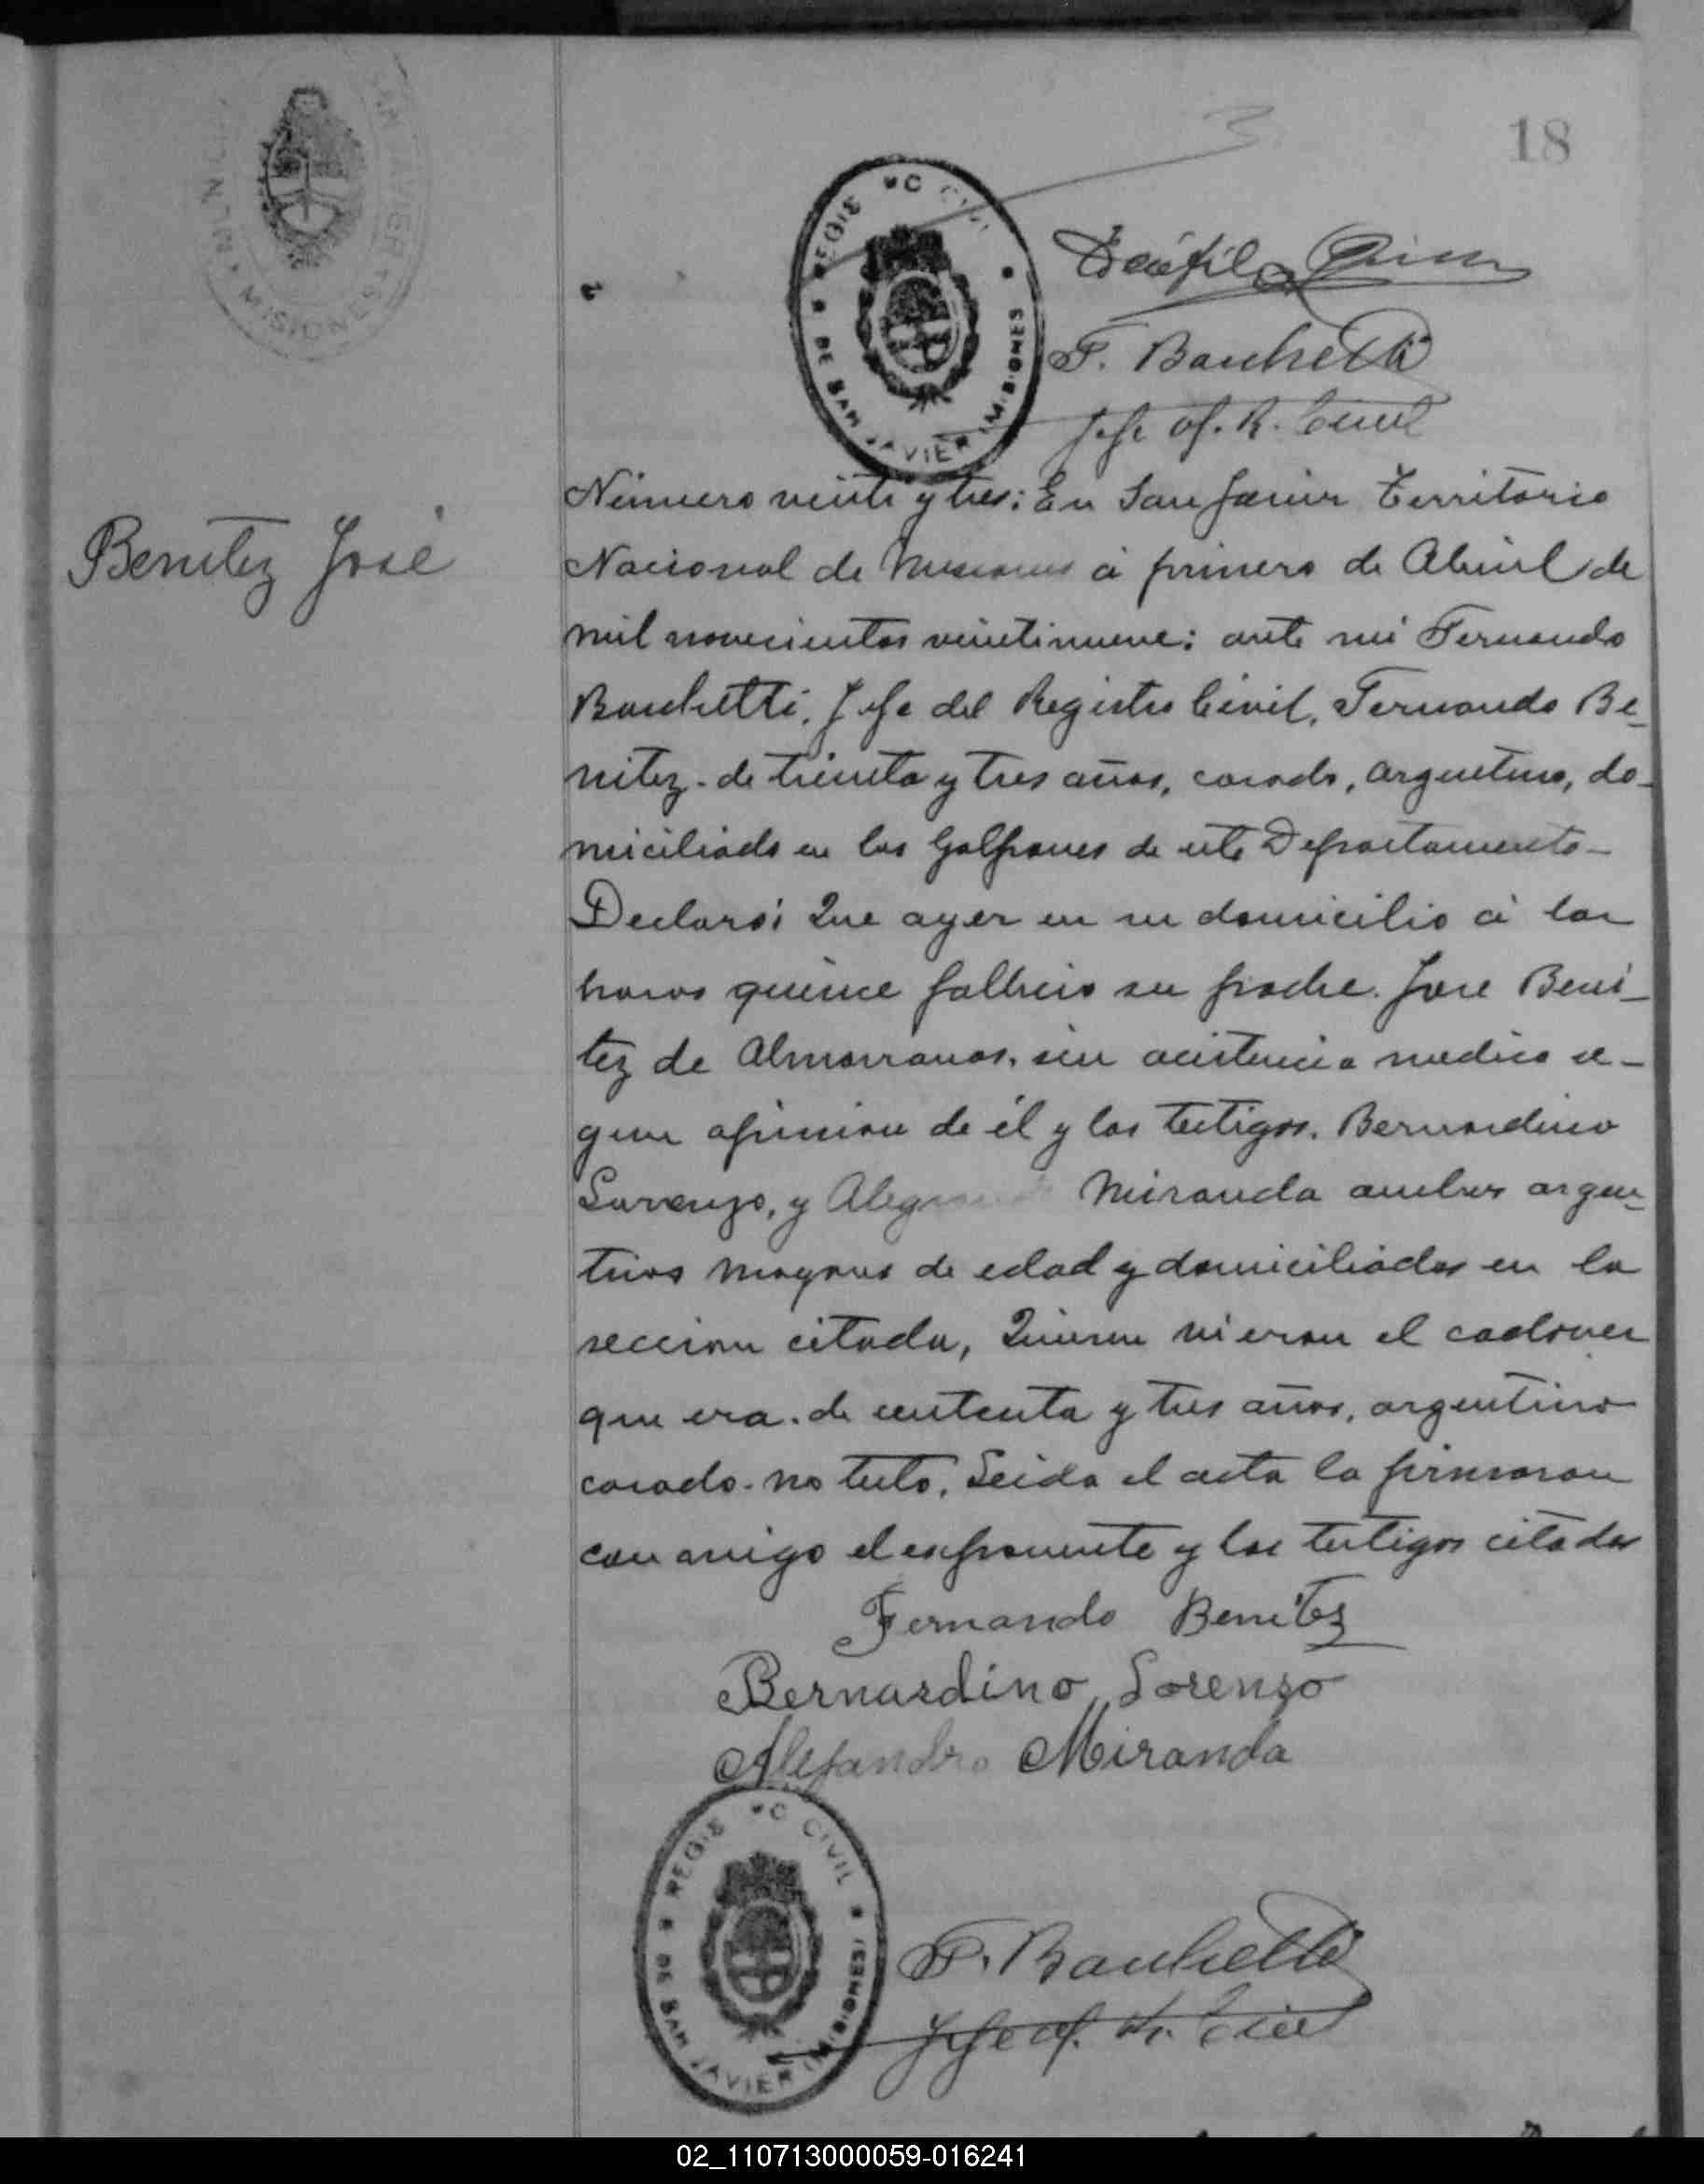 18
REGIS CIVIL
DE SAN JAVIER (MISIONES)
MISIONES
F. Banchetti
Jefe of. R. Civil
Benitez José
Número veinte y tres: En San Javier Territorio
Nacional de Misiones á primero de Abril de
mil novecientos veintinueve: ante mi Fernando
Banchetti, Jefe del Registro Civil, Fernando Be_
nitez. de treinta y tres años, casado, argentino, do_
miciliado en los Galpones de este Departamento_
Declaró: Que ayer en su domicilio á las
horas quince falleció su padre. Jose Beni_
tez de Almorranas, sin acistencia medica se_
gun opinion de él y los testigos. Bernardino
Lorenzo, y Miranda ambos argen_
tinos mayores de edad y domiciliados en la
seccion citada, Quienes vieron el cadaver
que era. de y tres años, argentino
casado. no testo. Leida el acta la firmaron
con migo el esponente y los testigos citados
Fernando Benitez
Bernardino Lorenzo
Alejandro Miranda
REGIS CIVIL
DE SAN JAVIER (MISIONES)
F. Banchetti
Jefe of. R. Civil
02_110713000059-016241